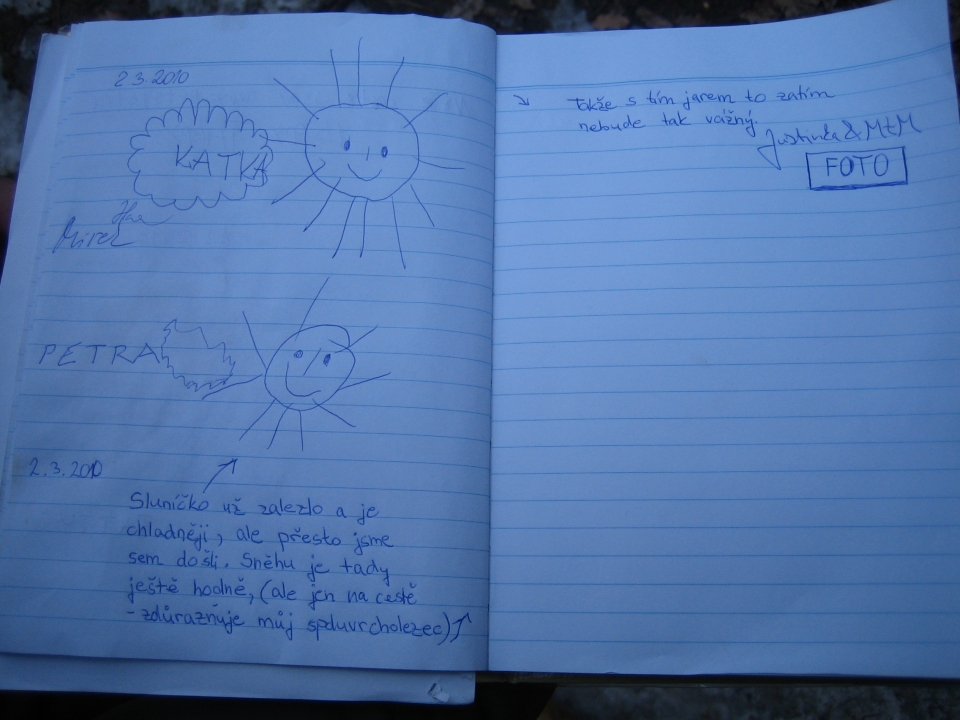 2 3 2010
KATKA
Mirek
PETRA
2.3.2010
Sluníčko už zalezlo a je
chladněji, ale přesto jsme
sem došli. Sněhu je tady
ještě hodně, (ale jen na cestě
- zdůrazňuje můj spduvrcholezec)
Takže s tím jarem to zatím
nebude tak vážný.
Justinka & M+M
FOTO